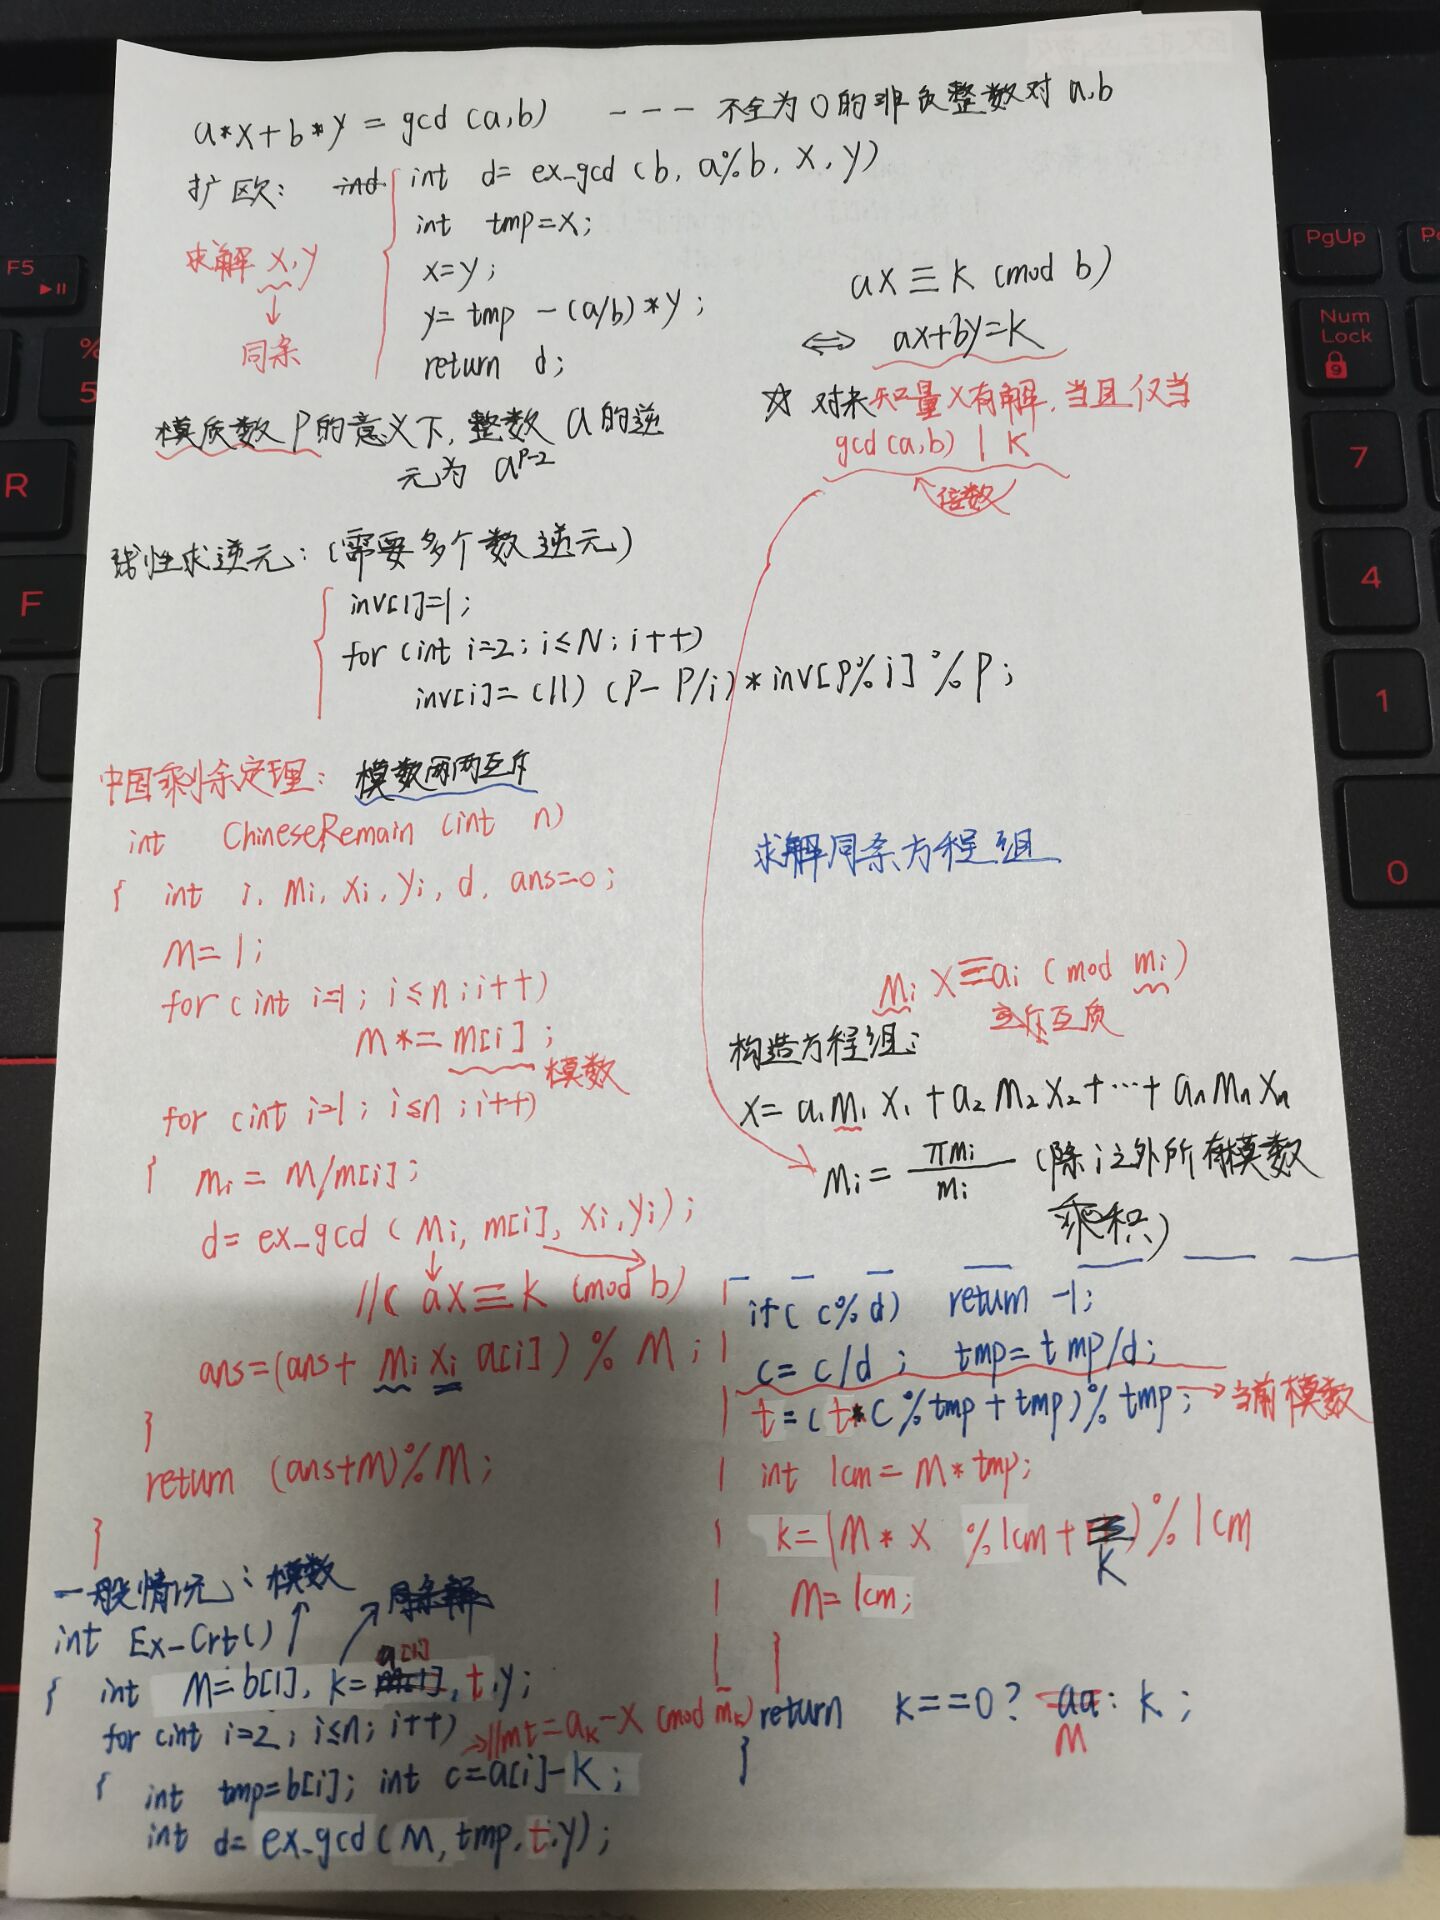 a*x+b*y = gcd(a,b) --- 不全为0的非负整数对 a,b
扩欧: int d= ex_gcd(b, a%b, x, y)
int tmp=x;
x=y;
y= tmp -(a/b)*y;
return d;
求解 x,y
↓
同余
ax≡k (mod b)
⇔ ax+by=k
☆ 对未知量x有解,当且仅当
gcd(a,b) | k
倍数
模质数P的意义下,整数a的逆
元为 a^{p-2}
线性求逆元:(需要多个数逆元)
{ inv[1]=1;
for(int i=2; i≤N; i++)
inv[i]=(ll)(p-p/i)*inv[p%i]%p;
中国剩余定理: 模数两两互斥
int ChineseRemain (int n)
{ int i, Mi, xi, yi, d, ans=0;
M=1;
for(int i=1; i≤n; i++)
M*=m[i];
模数
for(int i=1; i≤n; i++)
{ Mi=M/m[i];
d=ex_gcd(Mi, m[i], xi, yi);
//( ax≡k (mod b)
ans=(ans+ Mi xi a[i])%M;
}
return (ans+M)%M;
}
求解同余方程组
Mi x≡ai (mod mi)
互质
构造方程组:
x= a1M1x1+a2M2x2+…+anMnxn
Mi= πmi/mi (除i之外所有模数
乘积)
一般情况: 模数
int Ex_Crt()
{ int M=b[1], k=a[1], t,y;
for(int i=2; i≤n; i++) →//mt=ak-x (mod mk)
{ int tmp=b[i]; int c=a[i]-k;
int d=ex_gcd(M, tmp, t,y);
if(c%d) return -1;
c=c/d; tmp=tmp/d;
t=(t*c%tmp+tmp)%tmp; →当前模数
int lcm=M*tmp;
k=(M*x %lcm+k)%lcm
M=lcm;
}
return k==0? M: k;
}
F5
%
5
R
F
PgUp
Num
Lock
9
7
4
1
0